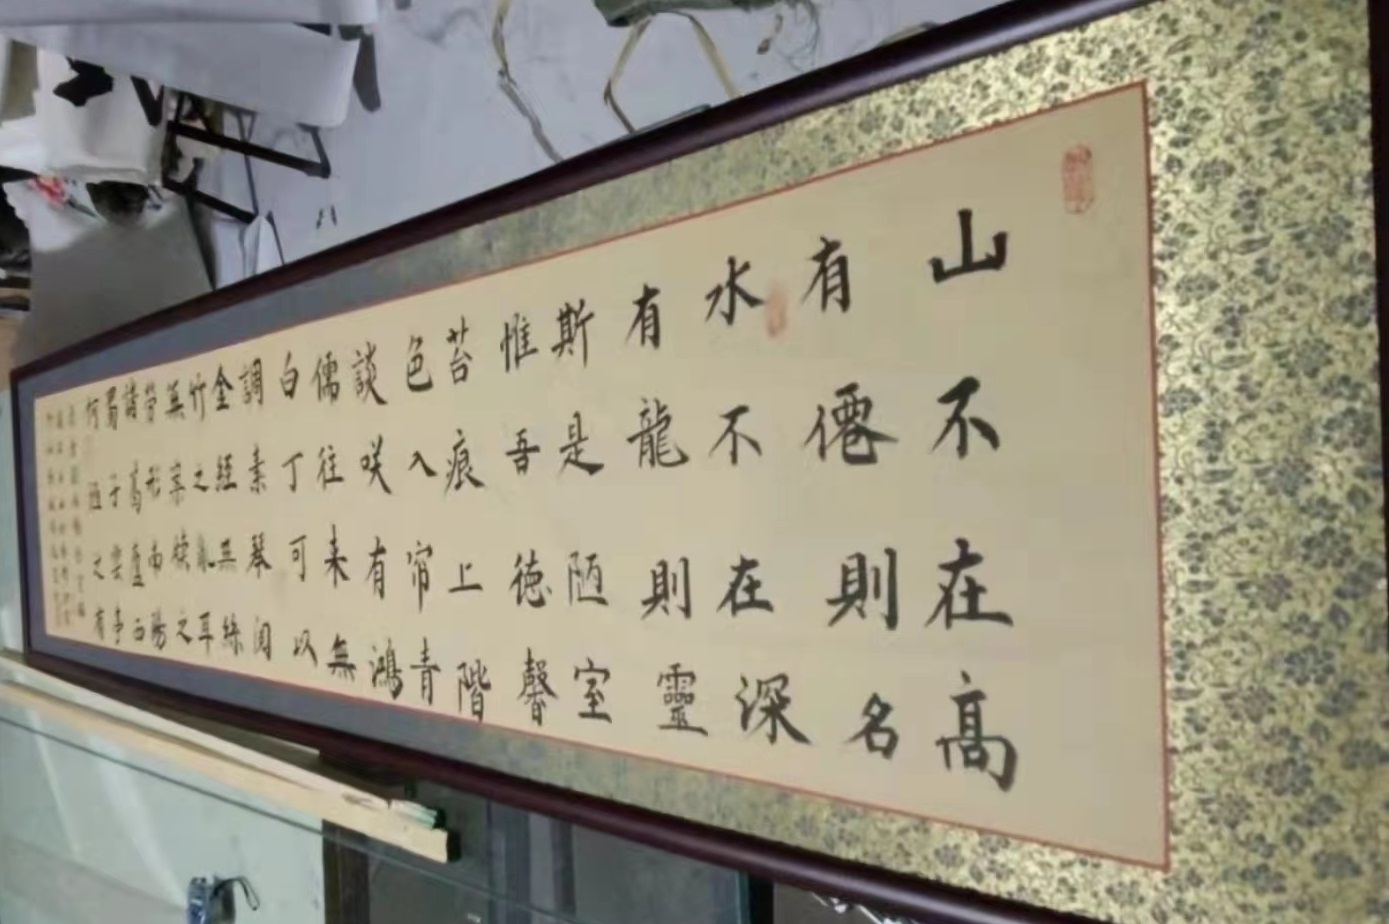 山不在高
有僊則名
水不在深
有龍則靈
斯是陋室
惟吾德馨
苔痕上階
色入帘青
談咲有鴻
儒往来無
白丁可以
調素琴閱
金經無絲
竹之亂耳
無案牘之
勞形南陽
諸葛廬西
蜀子雲亭
何陋之有